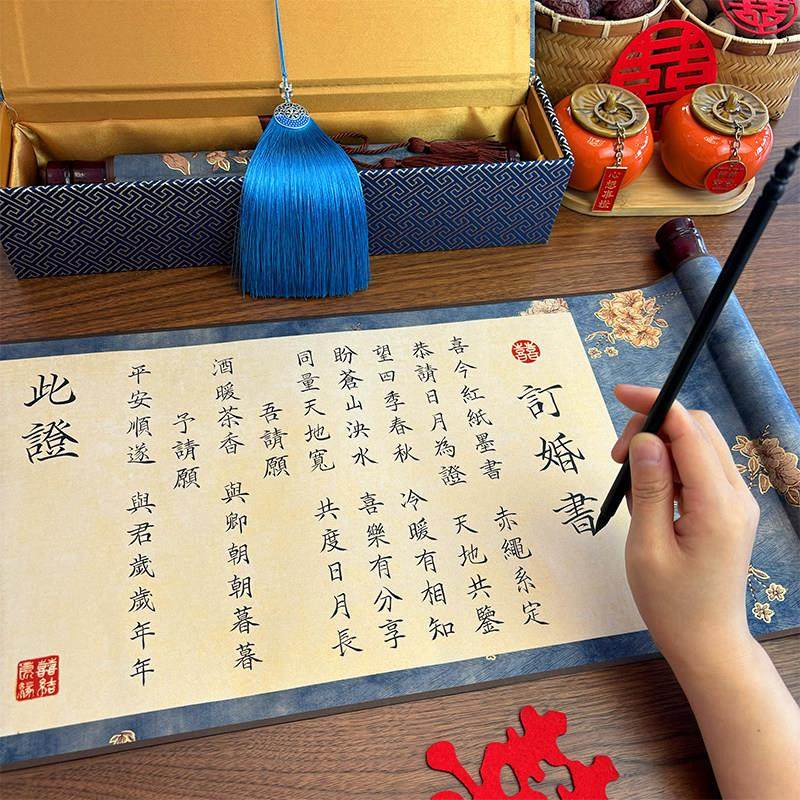 訂婚書
囍
喜今紅紙墨書 赤繩系定
恭請日月為證 天地共鑒
望四季春秋 冷暖有相知
盼蒼山泱水 喜樂有分享
同量天地寬 共度日月長
吾請願
酒暖茶香 與卿朝朝暮暮
予請願
平安順遂 與君歲歲年年
此證
囍結良緣
囍
囍
心想事成